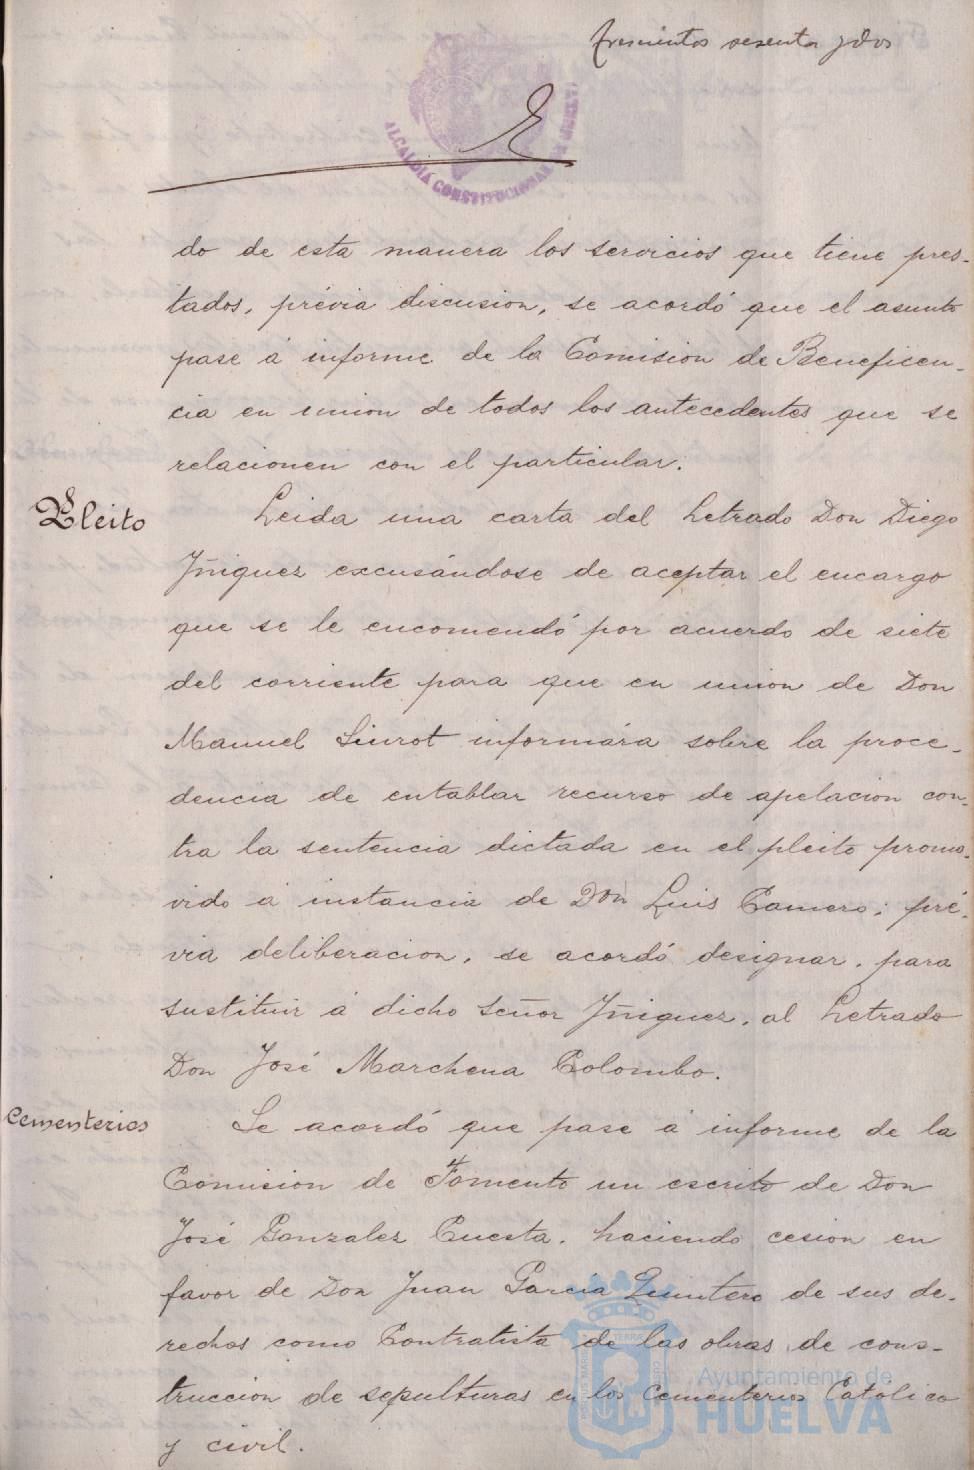 trescientos sesenta y dos
ALCALDÍA CONSTITUCIONAL DE HUELVA
do de esta manera los servicios que tiene pres-
tados, prévia discusion, se acordó que el asunto
pase á informe de la Comision de Beneficen-
cia en union de todos los antecedentes que se
relacionen con el particular.
Pleito
Leida una carta del Letrado Don Diego
Yñiguez excusándose de aceptar el encargo
que se le encomendó por acuerdo de siete
del corriente para que en union de Don
Manuel Siurot informára sobre la proce-
dencia de entablar recurso de apelacion con-
tra la sentencia dictada en el pleito promo-
vido á instancia de Don Luis Camero; pré-
via deliberacion, se acordó designar, para
sustituir á dicho señor Yñiguez, al Letrado
Don José Marchena Colombo.
Cementerios
Se acordó que pase á informe de la
Comision de Fomento un escrito de Don
José Gonzalez Cuesta, haciendo cesion en
favor de Don Juan Garcia Quintero de sus de-
rechos como Contratista de las obras de cons-
truccion de sepulturas en los Cementerios Catolico
y civil.
Ayuntamiento de
HUELVA